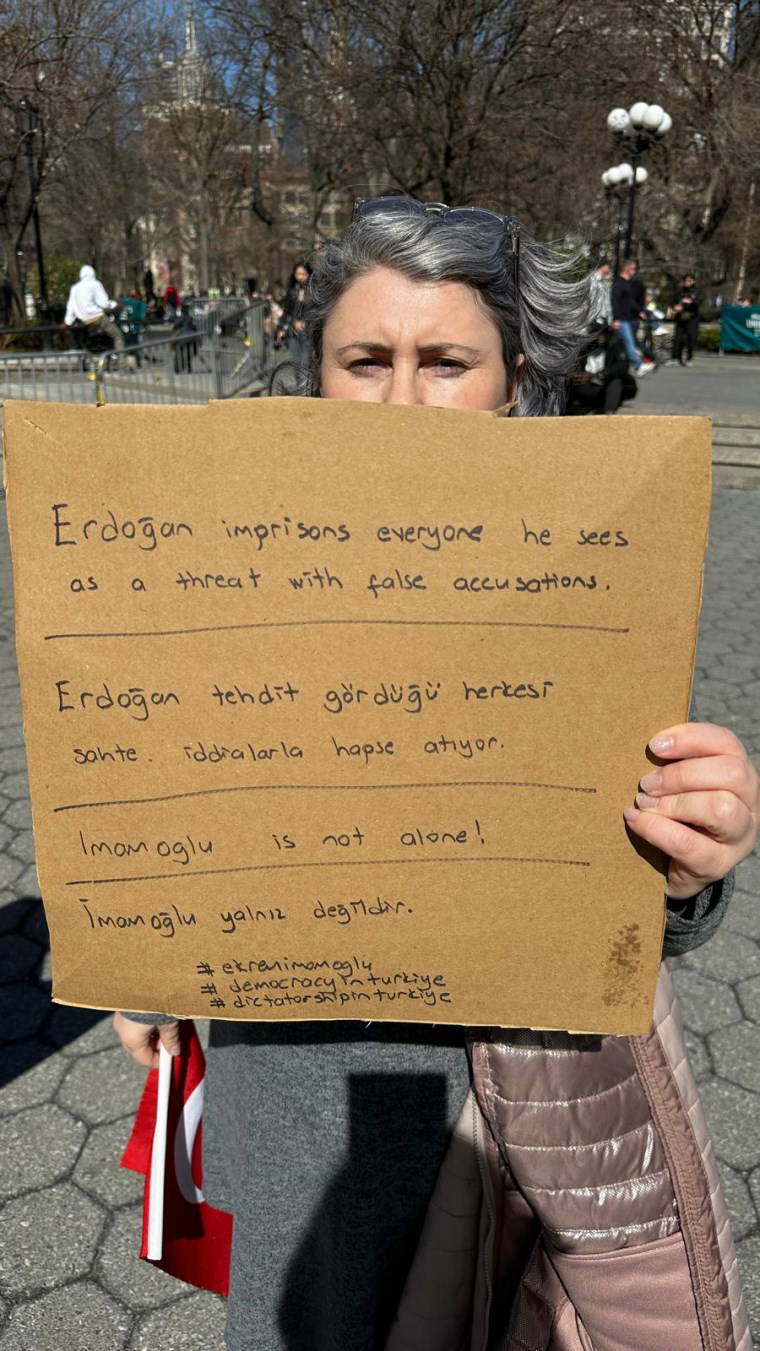 Erdoğan imprisons everyone he sees
as a threat with false accusations.
Erdoğan tehdit gördüğü herkesi
sahte. iddialarla hapse atıyor.
Imamoglu is not alone!
İmamoğlu yalnız değildir.
# ekremimamoglu
# democracyinturkiye
# dictatorshipinturkiye